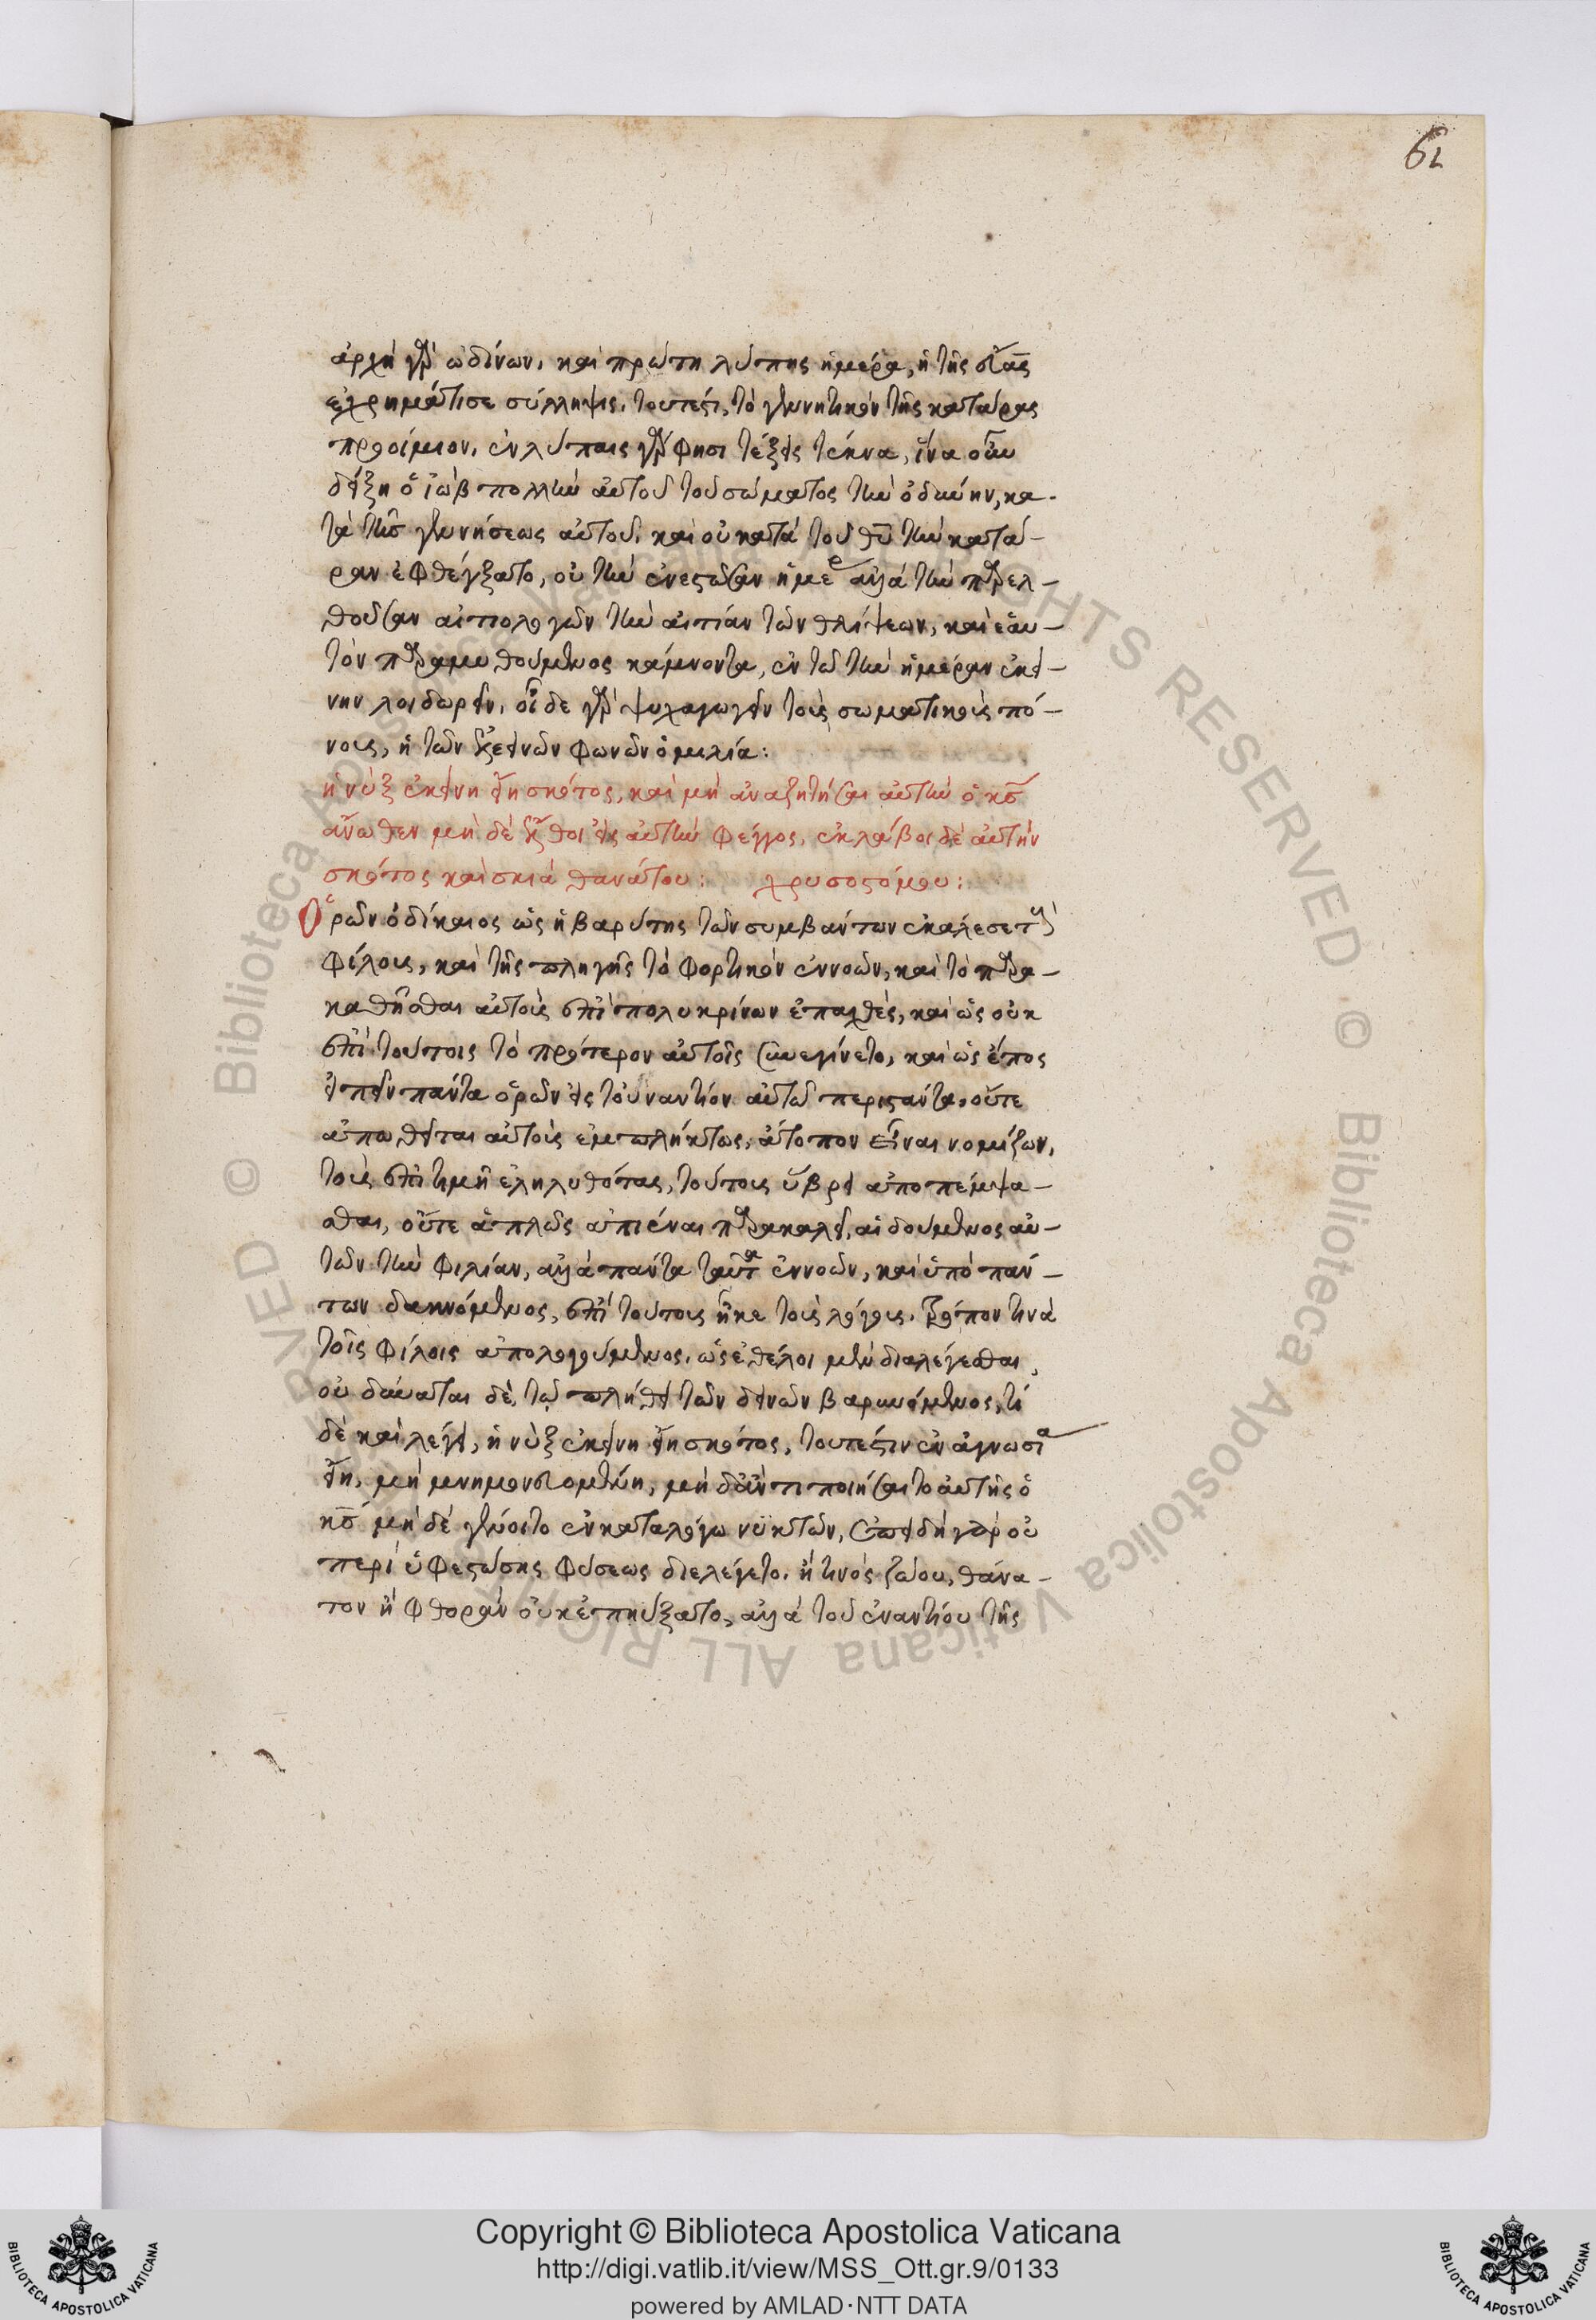 62
ἀρχὴ γὰρ ὠδίνων, καὶ πρώτη λύπης ἡμέρα, ἡ τῆς
ἐχρημάτισε σύλληψις, τουτέστι, τὸ γεννητικὸν τῆς κατάρας
προοίμιον, ἐν λύπαις γάρ φησι τέξεις τέκνα, ἵνα οὖν
δείξη ὁ ἰὼβ πολλὴν αὐτοῦ τοῦ σώματος τὴν ὀδύνην, κα-
τὰ τῆς γεννήσεως αὐτοῦ, καὶ οὐ κατὰ τοῦ θυ τὴν κατά-
ραν ἐφθέγξατο, οὐ τὴν ἐνεστῶσαν ἡμέρ ἀλλὰ τὴν παρελ-
θοῦσαν αἰτιολογῶν τὴν αἰτίαν τῶν θλίψεων, καὶ ἑαυ-
τὸν παραμυθούμενος κάμνοντα, ἐν τῶ τὴν ἡμέραν ἐκεί-
νην λοιδωρεῖν, οἶδε γὰρ ψυχαγωγεῖν τοὺς σωματικοὺς πό-
νους, ἡ τῶν ἐξεινῶν φωνῶν ὁμιλία:
ἡ νὺξ ἐκείνη εἴη σκότος, καὶ μὴ ἀναζητήσαι αὐτὴν ὁ κς
ἄνωθεν μὴ δὲ ἔλθοι εἰς αὐτὴν φέγγος, ἐκλάβοι δὲ αὐτὴν
σκότος καὶ σκιὰ θανάτου: χρυσοστόμου:
Ὁρῶν ὁ δίκαιος ὡς ἡ βαρύτης τῶν συμβάντων ἐκάλεσε τοὺς
φίλους, καὶ τῆς πληγῆς τὸ φορτικὸν ἐννοῶν, καὶ τὸ παρα-
καθῆσθαι αὐτοὺς ἐπὶ πολυ κρίνων ἐπαχθὲς, καὶ ὡς οὐκ
ἐπὶ τούτοις τὸ πρότερον αὐτοῖς συνεγίνετο, καὶ ὡς ἔπος
εἰπεῖν πάντα ὁρῶν εἰς τοὐναντίον αὐτῶ περιστάντα, οὔτε
ἀπωθεῖται αὐτοὺς ἐμπλήκτως, ἄτοπον εἶναι νομίζων,
τοὺς ἐπὶ τιμῆ ἐληλυθότας, τούτους ὕβρει ἀποπέμψα-
σθαι, οὔτε ἁπλῶς ἀπιέναι παρακαλεῖ, αἰδούμενος αὐ-
τῶν τὴν φιλίαν, ἀλλὰ πάντα ταῦτα ἐννοῶν, καὶ ὑπὸ πάν-
των δακνόμενος, ἐπὶ τούτους ἧκε τοὺς λόγους. τρόπον τινὰ
τοῖς φίλοις ἀπολογούμενος, ὡς ἐθέλοι μὲν διαλέγεσθαι,
οὐ δύναται δὲ, τῶ πλήθει τῶν δεινῶν βαρυνόμενος, τί
δὲ καὶ λέγει, ἡ νὺξ ἐκείνη εἴη σκότος, τουτέστιν ἐν ἀγνωσία
εἴη, μὴ μνημονευομένη, μὴ δ' ἀντιποιήσαιτο αὐτῆς ὁ
κς μὴ δὲ γένοιτο ἐν καταλόγω νϋκτῶν, ἐπειδὴ γὰρ οὐ
περὶ ὑφεστώσης φύσεως διελέγετο, ἤ τινος ζώου, θάνα-
τον ἢ φθορὰν οὐκ ἐπηύξατο, ἀλλὰ τοῦ ἐναντίου τῆς
Copyright © Biblioteca Apostolica Vaticana
http://digi.vatlib.it/view/MSS_Ott.gr.9/0133
powered by AMLAD·NTT DATA